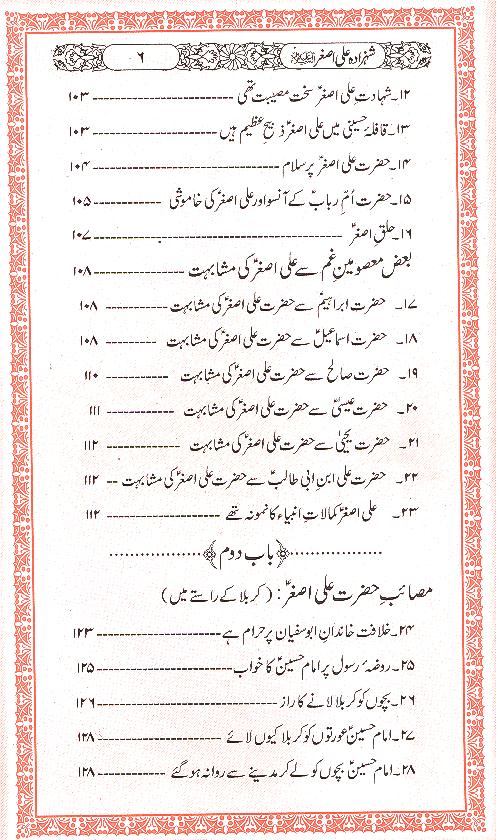 شہزادہ علی اصغرؑ ۶
۱۲۔شہادتِ علی اصغرؑ سخت مصیبت تھی ---------------- ۱۰۳
۱۳۔قافلۂ حسینی میں علی اصغرؑ ذبیحِ عظیم ہیں ---------------- ۱۰۳
۱۴۔حضرت علی اصغرؑ پر سلام ---------------- ۱۰۴
۱۵۔حضرت اُمِّ ربابؑ کے آنسو اور علی اصغرؑ کی خاموشی ---------- ۱۰۵
۱۶۔حلقِ اصغرؑ ---------------- ۱۰۷
بعض معصومین غم سے علی اصغرؑ کی مشابہت ---------- ۱۰۸
۱۷۔ حضرت ابراہیمؑ سے حضرت علی اصغرؑ کی مشابہت ---------- ۱۰۸
۱۸۔ حضرت اسماعیلؑ سے حضرت علی اصغرؑ کی مشابہت ---------- ۱۰۸
۱۹۔ حضرت صالحؑ سے حضرت علی اصغرؑ کی مشابہت ---------- ۱۱۰
۲۰۔ حضرت عیسیٰؑ سے حضرت علی اصغرؑ کی مشابہت ---------- ۱۱۱
۲۱۔ حضرت یحییٰؑ سے حضرت علی اصغرؑ کی مشابہت ---------- ۱۱۲
۲۲۔ حضرت علی ابنِ ابی طالبؑ سے حضرت علی اصغرؑ کی مشابہت -- ۱۱۲
۲۳۔ علی اصغرؑ کمالاتِ انبیاء کا نمونہ تھے ---------------- ۱۱۲
................ ﴿باب دوم﴾ ................
مصائبِ حضرت علی اصغرؑ: (کربلا کے راستے میں)
۲۴۔خلافت خاندانِ ابوسفیان پر حرام ہے ---------------- ۱۲۳
۲۵۔روضۂ رسولؐ پر امام حسینؑ کا خواب ---------------- ۱۲۵
۲۶۔بچوں کو کربلا لانے کا راز ---------------- ۱۲۶
۲۷۔امام حسینؑ عورتوں کو کربلا کیوں لائے ---------------- ۱۲۸
۲۸۔امام حسینؑ بچوں کو لے کر مدینے سے روانہ ہو گئے ---------- ۱۲۸